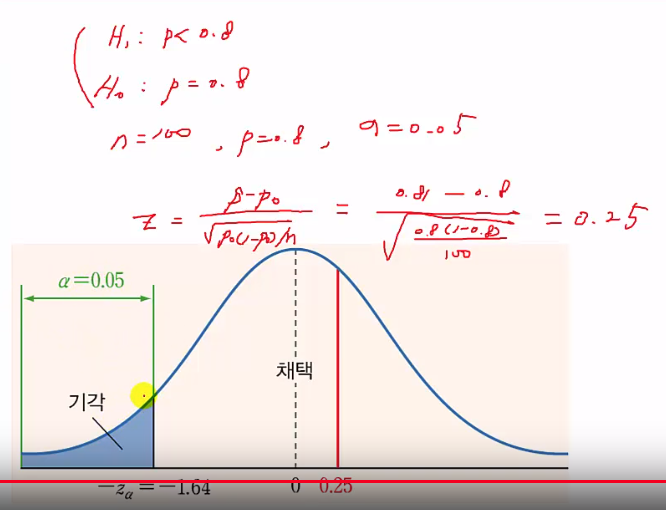 H₁ : p < 0.8
H₀ : p = 0.8
n=100 , p=0.8 , α=0.05
z = (p̂-p₀)/√(p₀(1-p₀)/n) = (0.81 - 0.8)/√(0.8(1-0.8)/100) = 0.25
α=0.05
채택
기각
-zα = -1.64 0 0.25